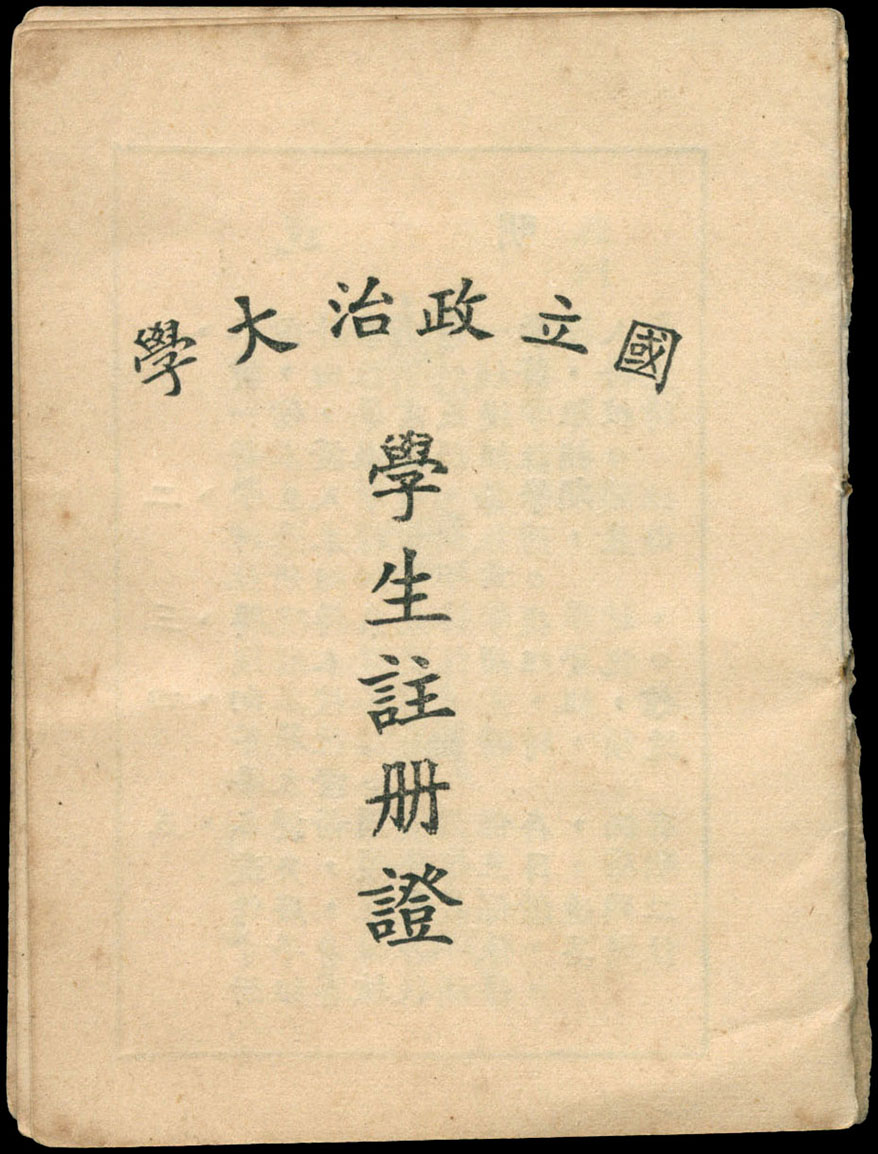 國立政治大學
學生註册證